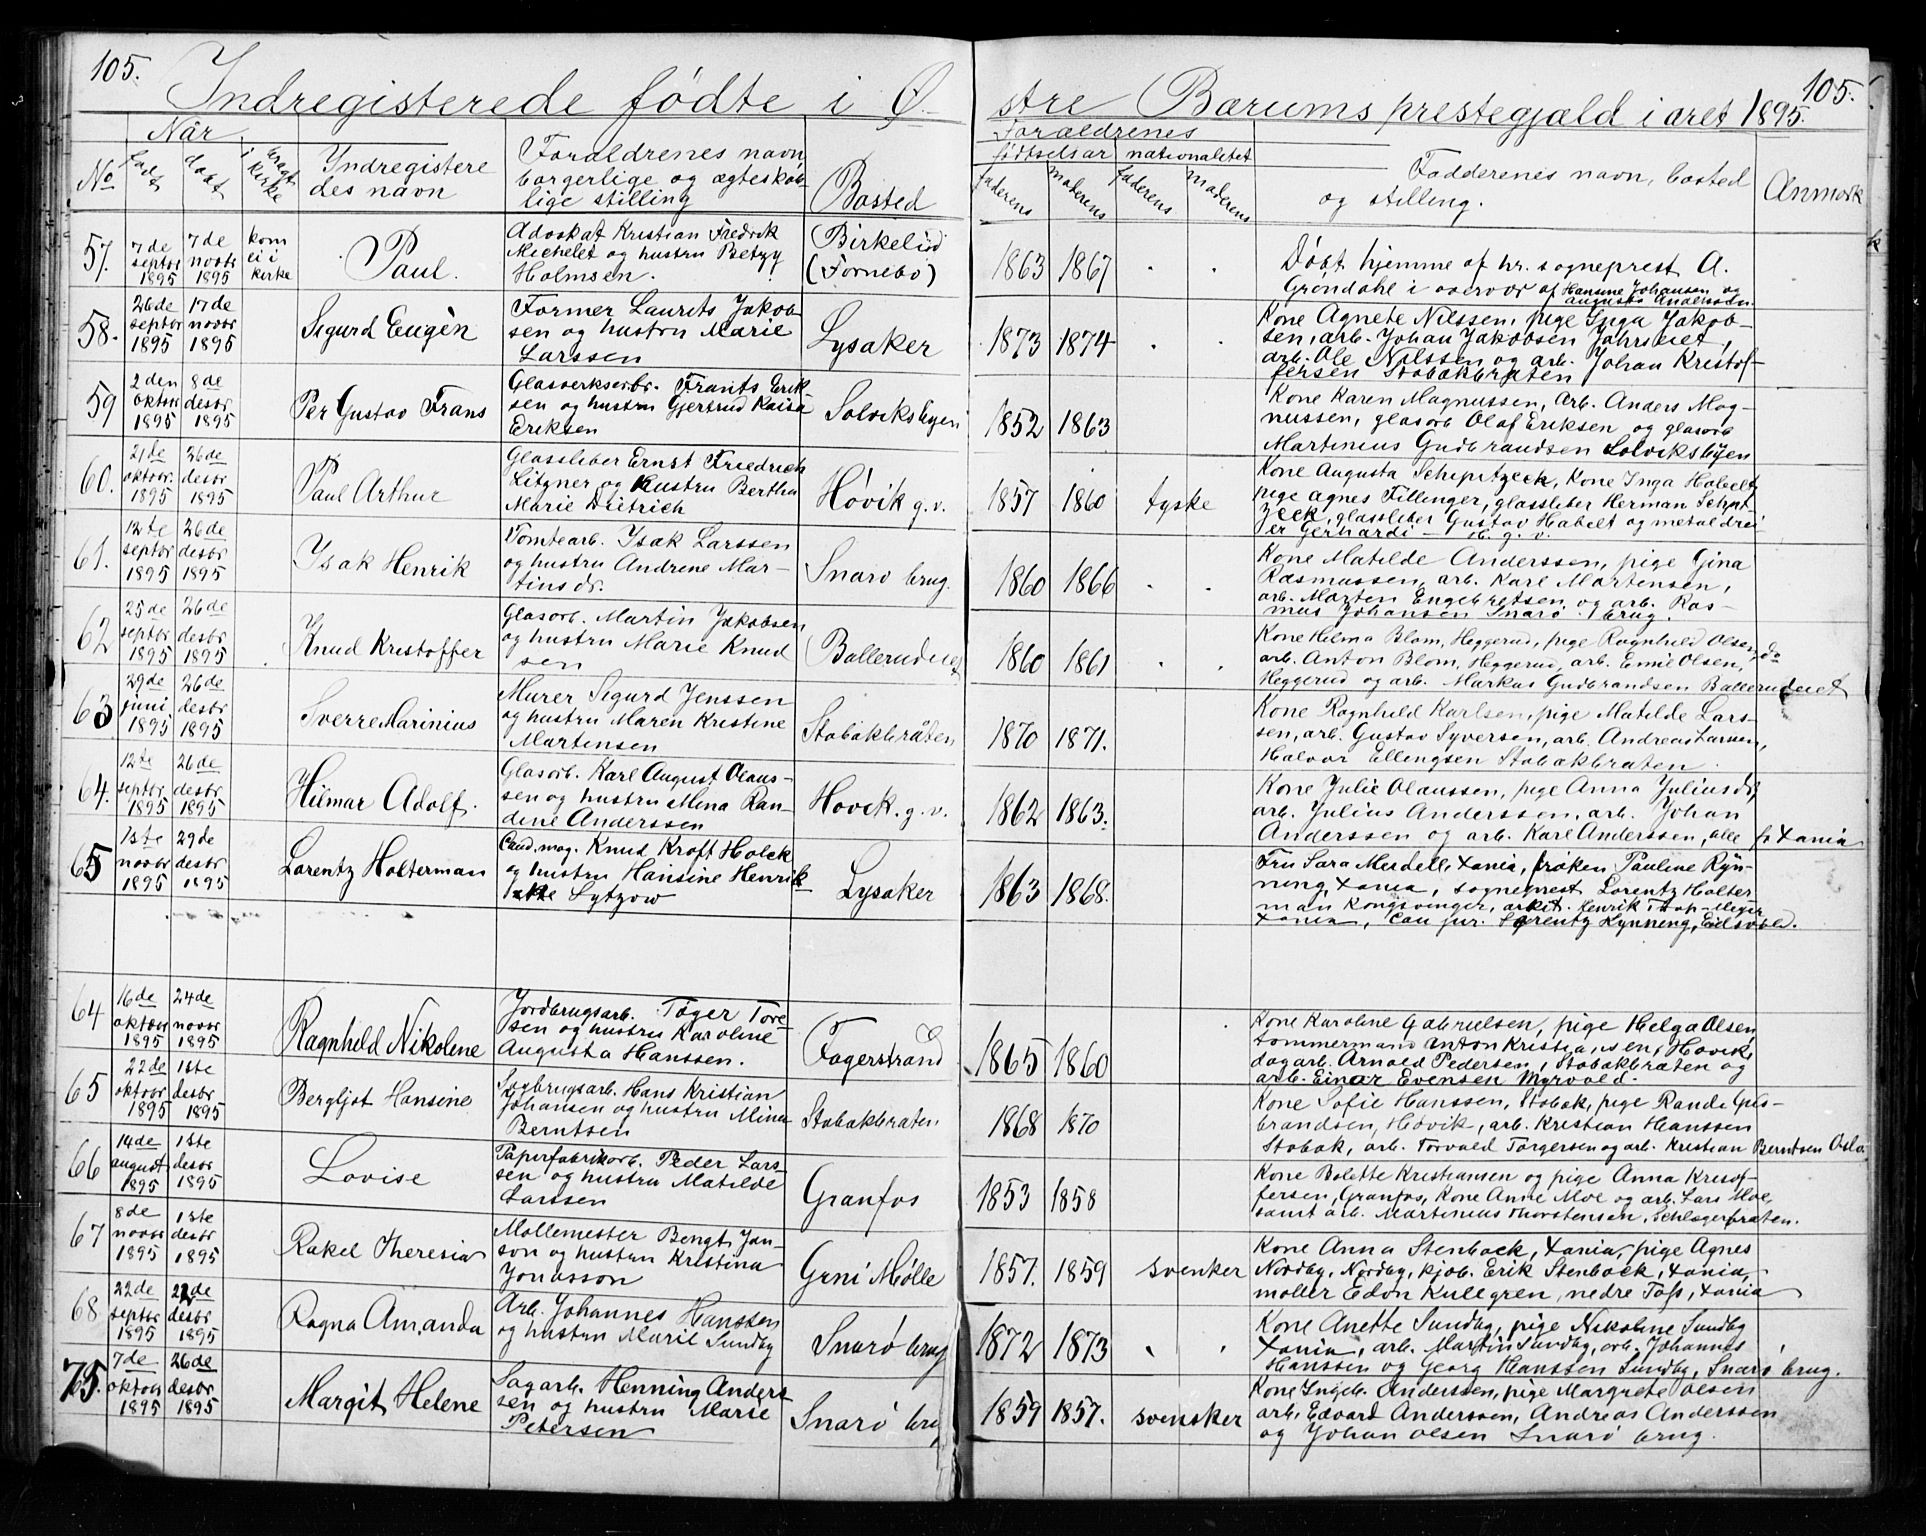 105.
Indregisterede fødte i Ø
stre Bærums prestegjæld i aret 1895.
105.
Når
Forældrenes
fødtselsar nationalitet
No
født
døbt
bragt i kirke
Yndregistere
des navn
Forældrenes navn
borgerlige og ægteskab-
lige stilling
Bosted
faderens
moderens
faderens
moderens
Fadderenes navn, bosted
og stilling.
Anmærk
57.
7de septbr 1895
7de novbr 1895
kom ei i kirke
Paul.
Advokat Kristian Fredrik
Michelet og hustru Betzy
Holmsen.
Birkelid
(Fornebo)
1863 1867
Døbt hjemme af hr. sogneprest A.
Grøndahl i overvær af Hansine Johansen og
Augusta Andersdtr.
58.
26de septbr 1895
17de novbr 1895
Sigurd Eugèn
Former Laurits Jakob-
sen og hustru Marie
Larssen
Lysaker
1873 1874
Kone Agnete Nilssen, pige Inga Jakob-
sen, arb. Johan Jakobsen Jahrseiet,
arb. Ole Nilssen og arb. Johan Kristof-
fersen Stabækbråten
59
2den oktbr 1895
8de desbr 1895
Per Gustav Frans
Glasverksarbr. Frants Erik-
sen og hustru Gjertrud Kaisa
Eriksen
Solviksbyen
1852 1863
Kone Karen Magnussen, Arb. Anders Mag-
nussen, glasarb Olaf Eriksen og glasarb
Martinius Gudbrandsen Solviksbyen
60.
21de oktobr. 1895
26de desbr 1895
Paul Arthur
Glassliber Ernst Friedrich
Litzner og hustru Bertha
Marie Dietrich
Høvik g.v.
1857 1860 tyske
Kone Augusta Schipitzeck, Kone Inga Habelt,
pige Agnes Fillinger, glassliber Herman Schipt-
zeck, glassliber Gustav Habelt og metaldrei
er Gerhardi — H. g. v.
61.
12te septbr 1895
26de desbr 1895
Ysak Henrik
Tomtearb. Ysak Larssen
og hustru Andrene Mar-
tinsdr.
Snarø brug.
1860 1866
Kone Matilde Anderssen, pige Gina
Rasmussen, arb. Karl Martensen,
arb. Morten Engebretsen og arb. Ras-
mus Johansen Snarø brug.
62
25de septbr 1895
26de desbr 1895
Knud Kristoffer
Glasarb. Martin Jakobsen
og hustru Marie Knud
sen
Ballerudeiet
1860 1861
Kone Helma Blom, Heggerud, pige Ragnhild Olsen, do
arb. Anton Blom, Heggerud, arb. Emil Olsen,
Heggerud og arb. Markus Gudbrandsen Ballerudeiet
63
29de juni 1895
26de desbr 1895
Sverre Marinius
Murer Sigurd Jenssen
og hustru Maren Kristine
Martensen
Stabækbråten
1870 1871.
Kone Ragnhild Karlsen, pige Matilde Lars-
sen, arb. Gustav Syversen, arb. Andreas Larssen,
Halvor Ellengsen Stabækbraten.
64.
12te septbr 1895
26de desbr 1895
Hilmar Adolf.
Glasarb. Karl August Olaus-
sen og hustru Mina Ran-
dine Anderssen
Høvik. g. v.
1862 1863.
Kone Julie Olaussen, pige Anna Juliusdr,
arb. Julius Anderssen, arb. Johan
Anderssen og arb. Karl Anderssen, alle fr Xania
65
1ste novbr 1895
29de desbr 1895
Lorentz Holterman
Cand. mag. Knud Kroft Holck
og hustru Hansine Henrik-
Lytzow
Lysaker
1863 1868.
Fru Sara Merdell, Xania, frøken Pauline Ryn-
ning, Xania, sogneprest Lorentz Holter-
man Kongsvinger, arkit. Henrik Meyer
Xania, Can jur. Lorentz Rynning, Eidsvold.
64
16de oktobr 1895
24de novbr 1895
Ragnhild Nikoline
Jordbrugsarb. Tøger Tore-
sen og hustru Karoline
Augusta Hanssen.
Fagerstrand
1865 1860
Kone Karoline Gabrielsen, pige Helga Olsen,
tømmermand Anton Kristiansen, Høvik,
dagarb. Arnold Pedersen, Stabækbråten og
arb. Einar Evensen Myrvold.
65
22de oktobr 1895
1ste desbr 1895
Bergljot Hansine
Sagbrugsarb. Hans Kristian
Johansen og hustru Mina
Berntsen
Stabækbraten
1868 1870
Kone Sofie Hanssen, Stabæk, pige Randi Gul-
brandsen, Høvik, arb. Kristian Hanssen
Stabæk, arb. Torvald Torgersen og arb. Kristian Berntsen Oslo.
66
14de august 1895
1ste desbr 1895
Lovise
Papirfabrikarb. Peder Lars-
sen og hustru Matilde
Larssen
Granfos
1853 1858
Kone Bolette Kristiansen og pige Anna Kristof-
fersen, Granfos, Kone Anne Moe og arb. Lars Moe,
samt arb. Martinius Thorstensen, Schlagerbråten.
67
8de novbr 1895
1ste desbr 1895
Rakel Theresia
Møllemester Bengt Jon-
son og hustru Kristina
Jonasson
Grni Mølle
1857. 1859 svenker
Kone Anna Stenbock, Xania, pige Agnes
Nordby, Nordby, kjøb. Erik Stenbock, Xania,
møller Edon Kullgren, nedre Tøfs, Xania
68
22de septbr 1895
22de desbr 1895
Ragna Amanda
Arb. Johannes Hanssen
og hustru Marie Sundby
Snarø brug
1872 1873
Kone Anette Sundby, pige Nikoline Sundby
Xania, arb. Martin Sundby, arb. Johannes
Hanssen og Georg Hanssen Sundby, Snarø brug.
75.
7de oktobr 1895
26de desbr 1895
Margit Helene
Sagarb. Henning Anders-
sen og hustru Marie
Petersen
Snarø brug
1859 1857. svensker
Kone Ingeb. Anderssen, pige Margrete Olsen
arb. Edvard Anderssen, Andreas Anderssen
og Johan Olsen Snarø brug.